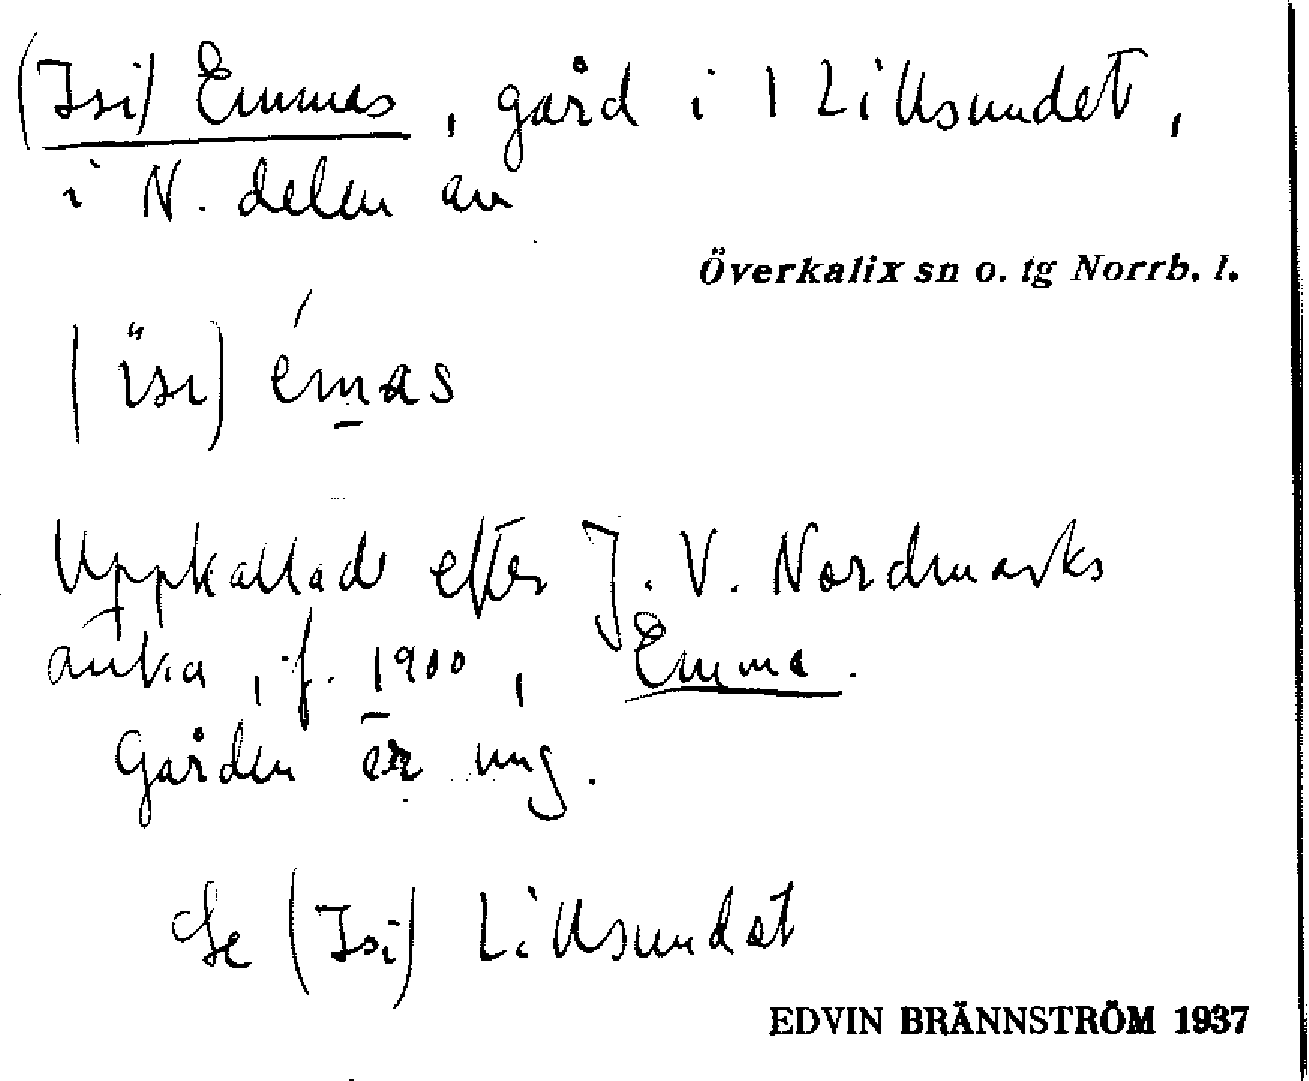 (Isi) Emmas, gård i 1 Lillsundet,
i N. delen av
Överkalix sn o. tg Norrb. l.
(ı̈sı) émas
Uppkallad efter J. V. Nordmarks
änka, f. 1900, Emma.
Gården är ung.
Se (Isi) Lillsundet
EDVIN BRÄNNSTRÖM 1937